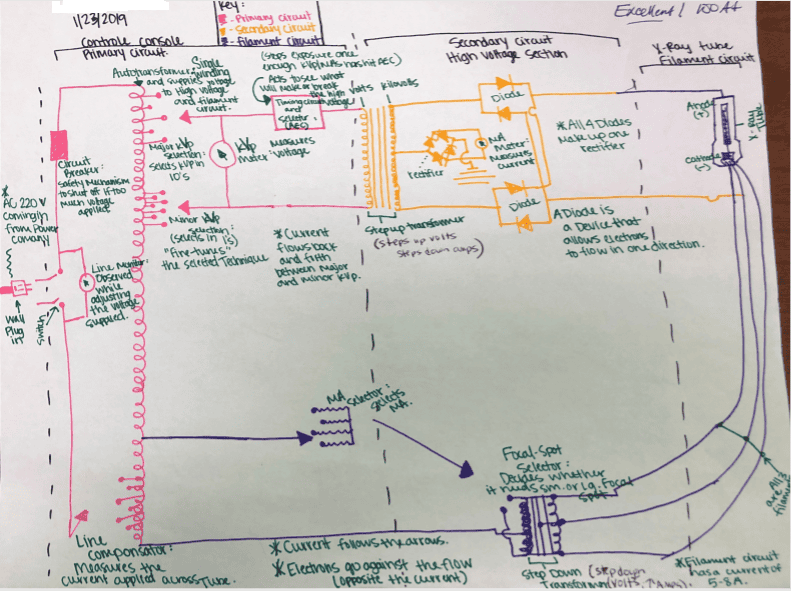 1/23/2019
Key:
- Primary circuit
- Secondary circuit
- Filament circuit
Excellent! 100 A+
Controle console
Primary circuit
Secondary circuit
High Voltage Section
X-Ray tube
Filament circuit
Autotransformer: Single
winding
and supplies voltage
to High voltage
and filament
circuit.
(stops exposure once
enough kVp/mAs has hit AEC)
Acts to see what
will make or break
the high voltage
Timing circuit
and
selector
(AES)
volts
kilovolts
Circuit
Breaker:
safety Mechanism
to shut off if too
much voltage
applied
Major kVp
selection:
selects kVp in
10's
kVp
Meter:
Measures
Voltage
Minor kVp
selection:
(selects in 1s)
"Fine-tunes"
the selected Technique
* Current
flows back
and fifth
between Major
and minor kVp.
Diode
rectifier
MA
Meter:
Measures
current
Diode
* All 4 Diodes
Make up one
rectifier
Step up transformer
(steps up volts
steps down amps)
A Diode is
a Device that
allows electrons
to flow in one direction.
Anode
(+)
Cathode
(-)
X-Ray
Tube
*
AC 220 V
coming in
from Power
company
Wall
Plug
in
Switch
Line Monitor:
Observed
while
adjusting
the Voltage
supplied.
MA
selector:
selects
MA.
Focal-Spot
Selector:
Decides whether
it needs sm. or Lg. Focal
Spot
All 3
are
filament
Line
compensator:
Measures the
current applied across Tube.
* Current follows the arrows.
* Electrons go against the flow
(opposite the current)
Step Down (step down
Transformer (volts, ↑ Amps).
* Filament circuit
has a current of
5-8A.